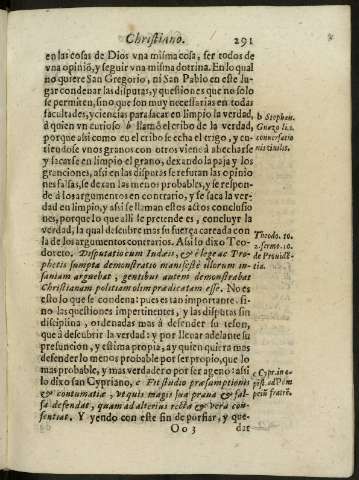 Christiano. 291
en las cosas de Dios vna misma cosa, ser todos de
vna opinió, y seguir vna misma dotrina. En lo qual
no quiere San Gregorio, ni San Pablo en este lu-
gar condenar las disputas, y questiones que no solo
se permiten, sino que son muy necessarias en todas
facultades, y ciencias para sacar en limpio la verdad,
á quien vn curioso b llamó el cribo de la verdad,
porque assi como en el cribo se echa el trigo, y cu-
tiendose vnos granos con otros viene à abecharse
y sacarse en limpio el grano, dexando la paja y los
granciones, assi en las disputas se refutan las opinio
nes falsas, se dexan las menos probables, y se respon-
de à los argumentos en contrario, y se saca la ver-
dad en limpio, y assi se llaman estos actos conclusio
nes, porque lo que alli se pretende es, concluyr la
verdad, la qual descubre mas su fuerça careada con
la de los argumentos contrarios. Assi lo dixo Teo-
doreto. Disputatio cum Indæis, & è legeac Pro-
phetis sumpta demonstratio manifestè illorum in-
saniam arguebat, gentibus autem demonstrabat
Christianam politiam olim prædicatam esse. No es
esto lo que se condena: pues es tan importante. si-
no las questiones impertinentes, y las disputas sin
disciplina, ordenadas mas á defender su teson,
que à descubrir la verdad: y por lleuar adelante su
presuncion, y estima propia, ay quien quiera mas
defender lo menos probable por ser propio, que lo
mas probable, y mas verdadero por ser ageno: assi
lo dixo san Cypriano, c Fit studio præsumptionis
& contumatiæ, vt quis magis sua praua & fal-
sa defendat, quam ad alterius recta & vera con-
sentiat. Y yendo con este fin de porfiar, y que-
Oo 3 dar
b Stephen.
conuersatio
Theodo. 10.
2. sermo. 10.
de Prouidē-
tia.
c Cypr. in e-
pist. ad Pom
peiū fratrē.